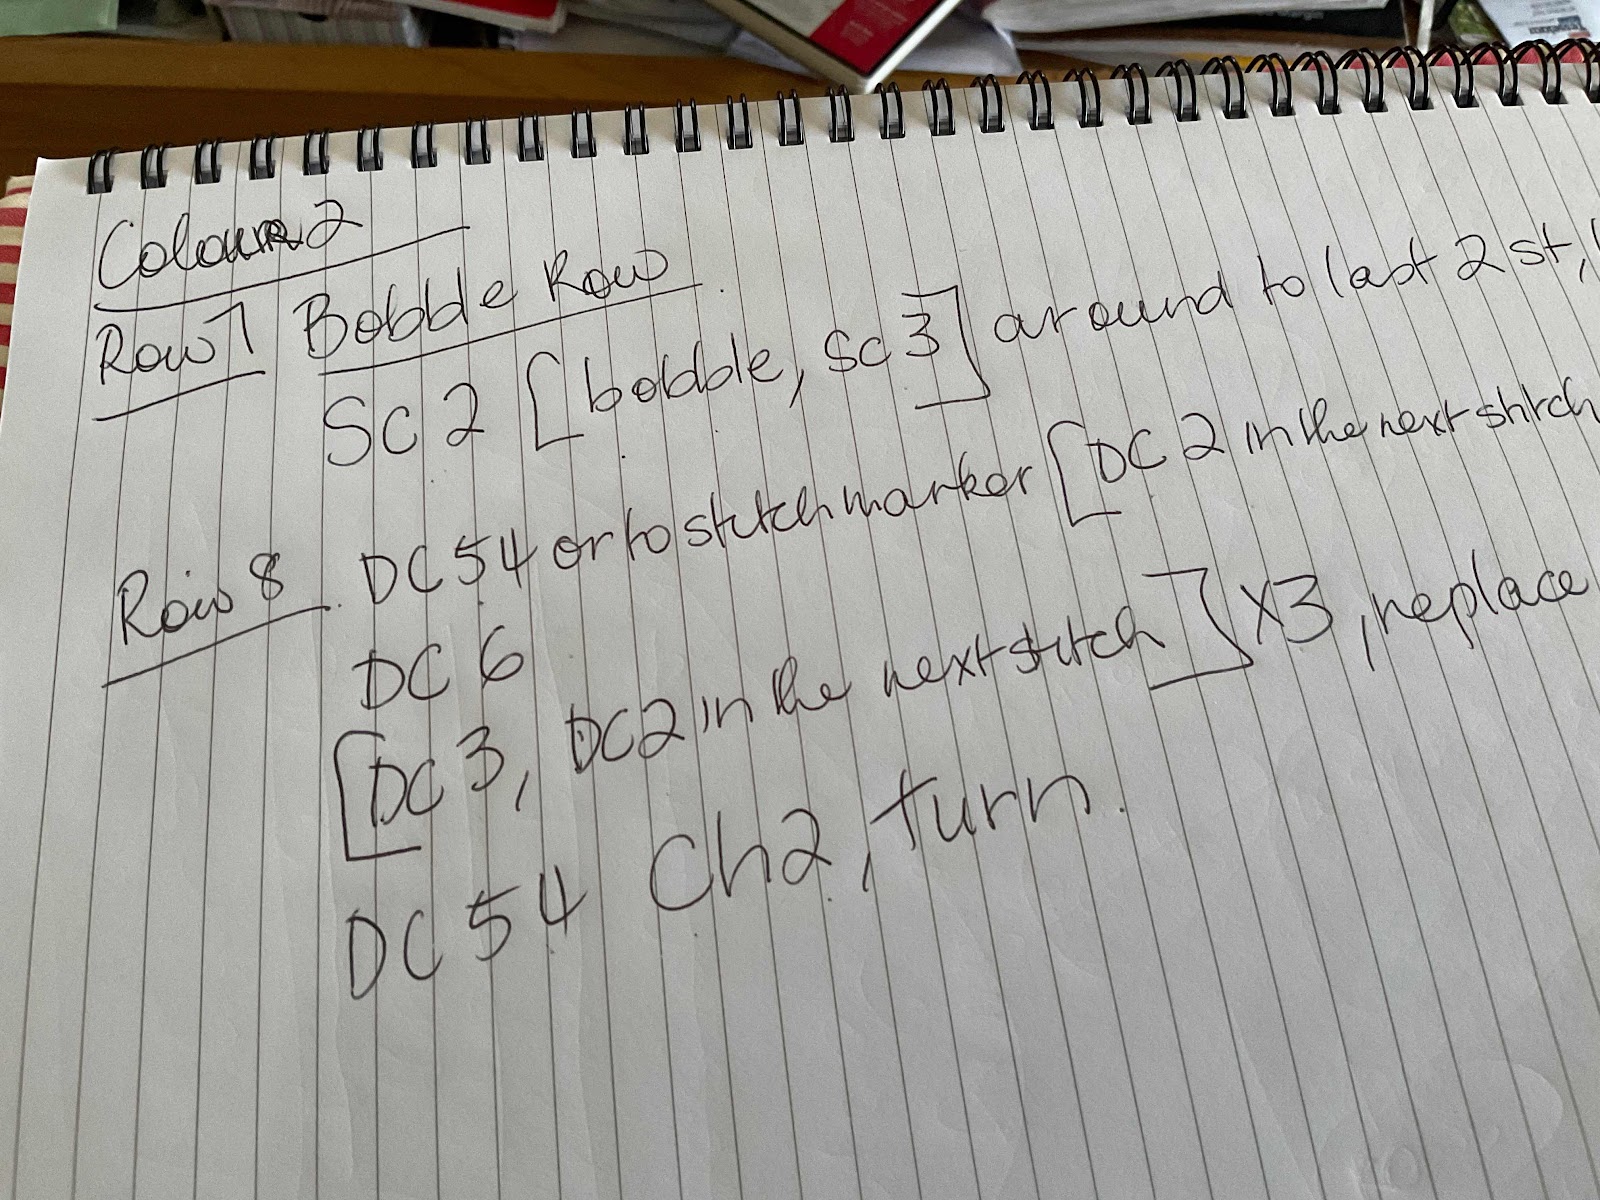 Colour 2
Row 7 Bobble Row
SC 2 [bobble, SC 3] around to last 2 st,
Row 8 DC 54 or to stitch marker [DC 2 in the next stitch
DC 6
[DC 3, DC2 in the next stitch] X3, replace
DC 54 Ch2, turn.